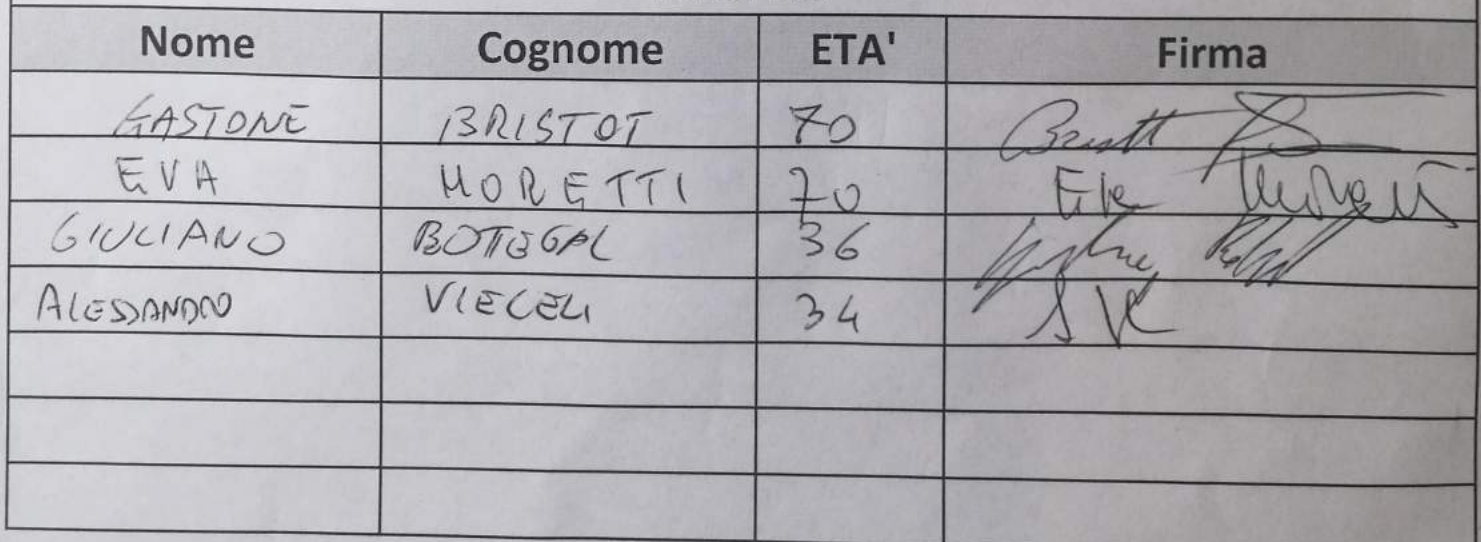 Nome Cognome ETA' Firma
GASTONE BRISTOT 70
EVA MORETTI 70 Eva Moretti
GIULIANO BOTTEGAL 36
ALESSANDRO VIECELI 34